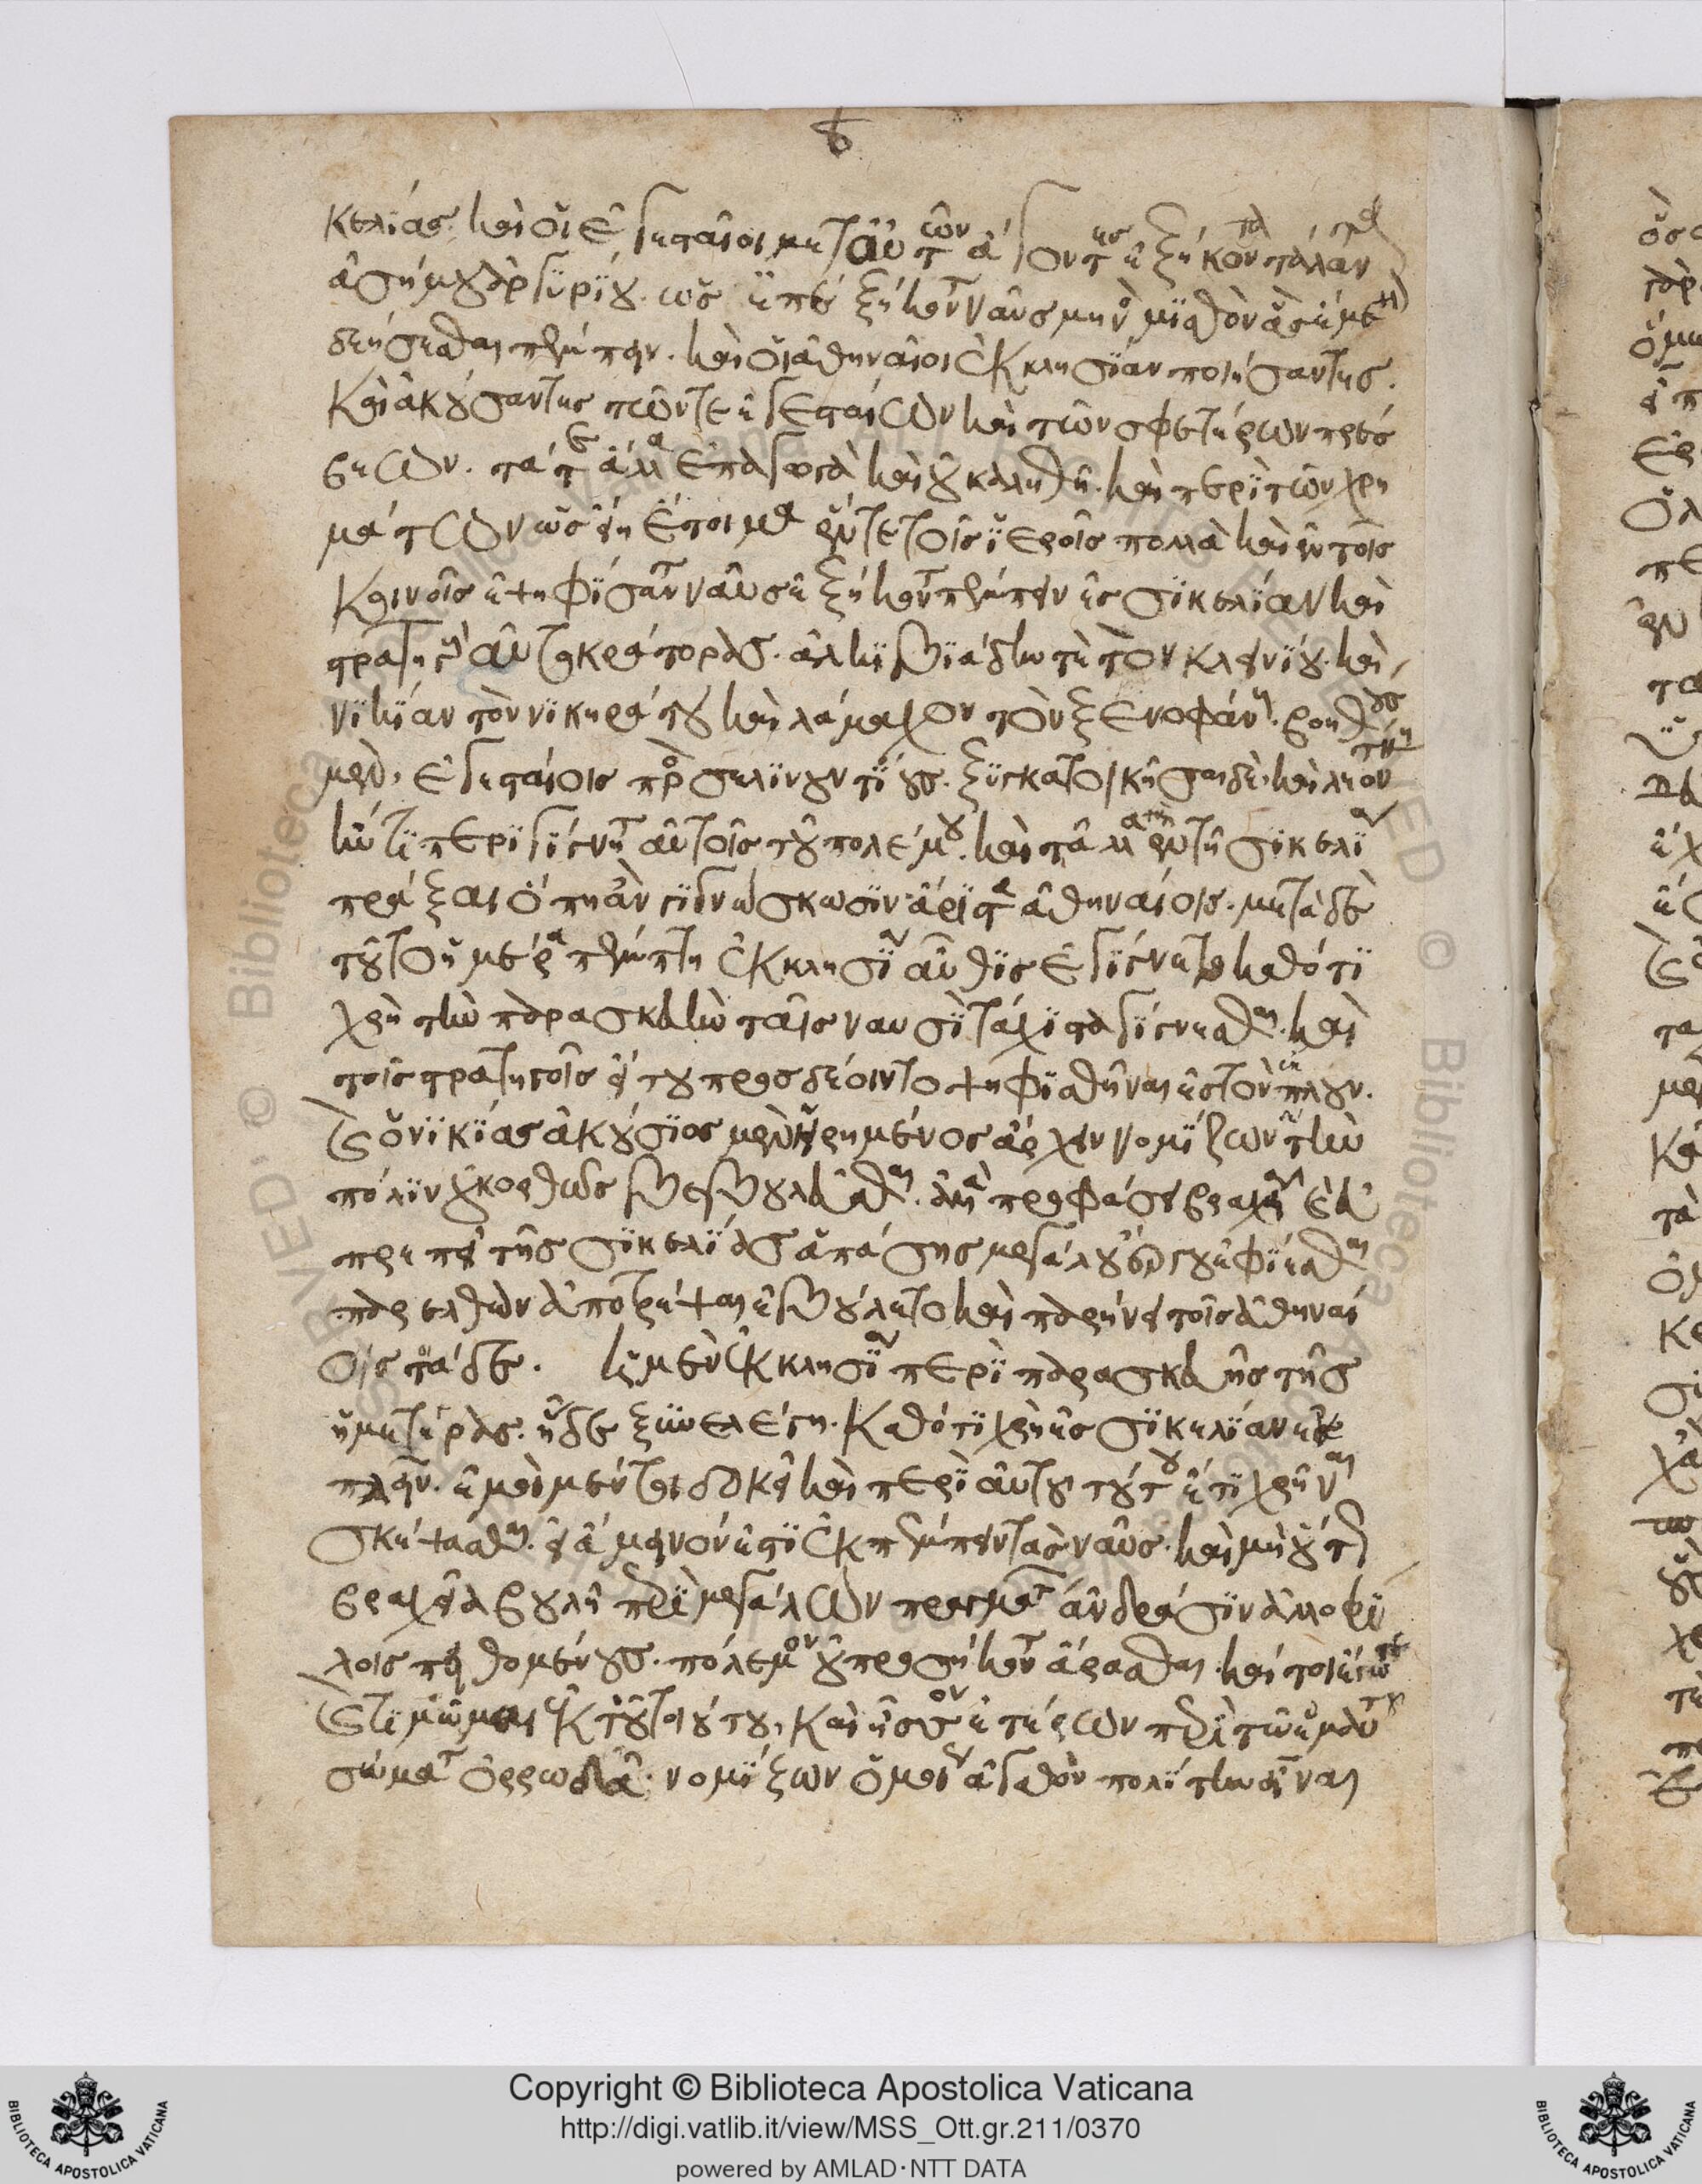 κελίας. καὶ οἱ ἐγεσταῖοι μετ' αὐτῶν ἄγοντες ἑξήκοντα τάλαν
ἀσήμου ἀργυρίου. ὡς ἐπὶ ἑξήκοντα ναῦς μηνὸς μισθὸν ἃς ἔμελ
δεήσεσθαι πέμπειν. καὶ οἱ ἀθηναῖοι ἐκκλησίαν ποιήσαντες.
καὶ ἀκούσαντες τῶν τε ἐγεσταίων καὶ τῶν σφετέρων πρέσ
βεων. τά τε ἄλλα ἐπαγωγὰ καὶ οὐκ ἀληθῆ. καὶ περὶ τῶν χρη
μάτων ὡς εἴη ἕτοιμα ἔν τε τοῖς ἱεροῖς πολλὰ καὶ ἐν τοῖς
κοινοῖς ἐψηφίσαντο ναῦς ἑξήκοντα πέμπειν ἐς σικελίαν καὶ
στρατηγοὺς αὐτοκράτορας. ἀλκιβιάδην τὲ τὸν κλεινίου. καὶ
νικίαν τὸν νικηράτου καὶ λάμαχον τὸν ξενοφάνους. βοηθοὺς
μὲν, ἐγεσταίοις πρὸς σελινουντίους. ξυγκατοικῆσαι δὲ, καὶ λεοντίνων
ἤν τι περιγίγνηται αὐτοῖς τοῦ πολέμου. καὶ τἄλλα τὰ ἐν τῇ σικελία
πράξαι ὅπη ἂν γιγνώσκωσιν ἄριστα ἀθηναίοις. μετὰ δὲ
τοῦτο ἡμέρα πέμπτη ἐκκλησία αὖθις ἐγίγνετο καθότι
χρὴ τὴν παρασκευὴν ταῖς ναυσὶ τάχιστα γίγνεσθαι. καὶ
τοῖς στρατηγοῖς εἴ του προσδέοιντο ψηφισθῆναι ἐς τὸν ἔκπλουν.
καὶ ὁ νικίας ἀκούσιος μὲν ᾑρημένος ἄρχειν νομίζων δὲ τὴν
πόλιν οὐκ ὀρθῶς βεβουλεῦσθαι. ἀλλὰ προφάσει βραχεῖα καὶ εὐ
πρεπεῖ τῆς σικελίας ἁπάσης μεγάλου ἔργου ἐφίεσθαι
παρελθὼν ἀποτρέψαι ἐβούλετο καὶ παρήνει τοῖς ἀθηναί
οις τάδε. ἡ μὲν ἐκκλησία περὶ παρασκευῆς τῆς
ἡμετέρας. ἥδε ξυνελέγη. καθότι χρὴ ἐς σικελίαν ἐκ
πλεῖν. ἐμοὶ μέντοι δοκεῖ καὶ περὶ αὐτοῦ τούτου ἔτι χρῆναι
σκέψασθαι. εἰ ἄμεινον ἐστὶ ἐκπέμπειν τὰς ναῦς. καὶ μὴ οὕτω
βραχεία βουλῇ περὶ μεγάλων πραγμάτων ἀνδράσιν ἀλλοφύ
λοις πειθομένους. πόλεμον οὐ προσήκοντα ἄρασθαι. καίτοι ἔγωγε
καὶ τιμῶμαι ἐκ τοῦ τοιούτου, καὶ ἧσσον ἑτέρων περὶ τῷ ἐμαυτοῦ
σώματι ὀρρωδῶ. νομίζων ὁμοίως ἀγαθὸν πολίτην εἶναι
Copyright © Biblioteca Apostolica Vaticana
http://digi.vatlib.it/view/MSS_Ott.gr.211/0370
powered by AMLAD·NTT DATA